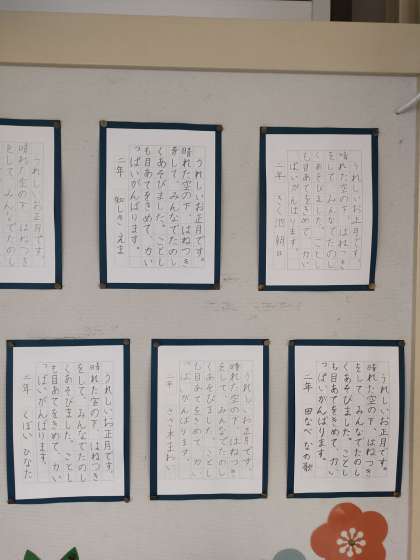 うれしいお正月です。
晴れた空の下、はねつき
をして、みんなでたのし
くあそびました。ことし
も目あてをきめて、力い
っぱいがんばります。
二年 きく池 朝日
うれしいお正月です。
晴れた空の下、はねつき
をして、みんなでたのし
くあそびました。ことし
も目あてをきめて、力い
っぱいがんばります。
二年 えま
うれしいお正月です。
晴れた空の下、はねつき
をして、みんなでたのし
うれしいお正月です。
晴れた空の下、はねつき
をして、みんなでたのし
くあそびました。ことし
も目あてをきめて、力い
っぱいがんばります。
二年 田なか なの歌
うれしいお正月です。
晴れた空の下、はねつき
をして、みんなでたのし
くあそびました。ことし
も目あてをきめて、力い
っぱいがんばります。
二年 ささ木
うれしいお正月です。
晴れた空の下、はねつき
をして、みんなでたのし
くあそびました。ことし
も目あてをきめて、力い
っぱいがんばります。
二年 くぼい ひなた